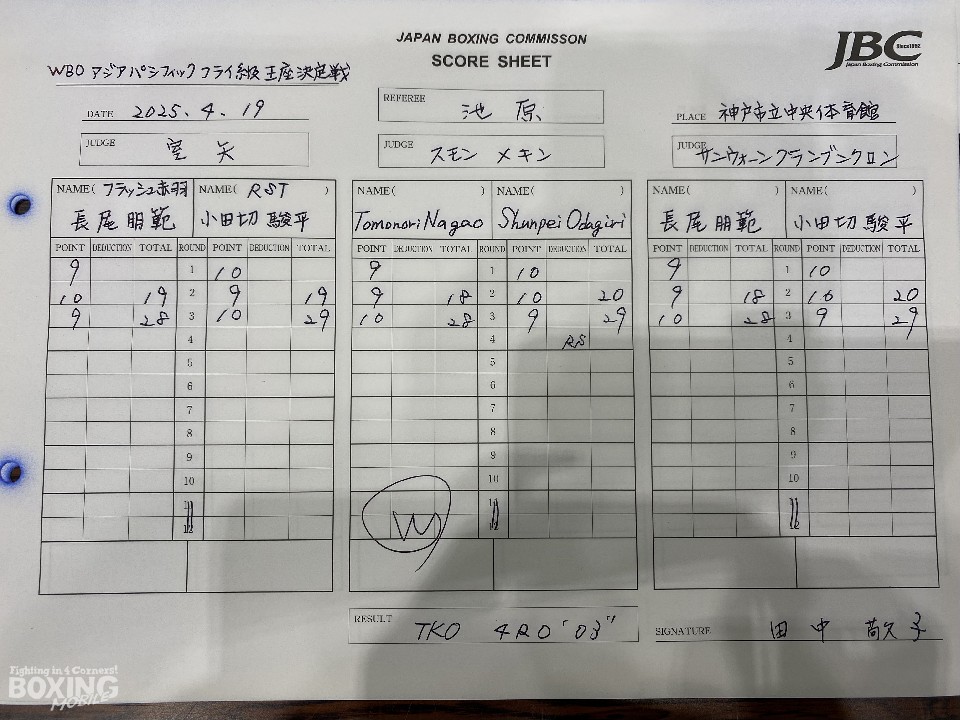 JAPAN BOXING COMMISSON
SCORE SHEET
JBC
Since1952
Japan Boxing Commission
WBO アジアパシフィックフライ級王座決定戦
DATE 2025.4.19
REFEREE 池原
PLACE 神戸市立中央体育館
JUDGE 室矢
JUDGE スモン メキン
JUDGE サンウォーンクランブンクロン
NAME( フラッシュ赤羽 NAME( RST ) NAME( ) NAME( ) NAME( ) NAME( )
長尾朋範 小田切駿平 Tomonori Nagao Shunpei Odagiri 長尾朋範 小田切駿平
POINT DEDUCTION TOTAL ROUND POINT DEDUCTION TOTAL POINT DEDUCTION TOTAL ROUND POINT DEDUCTION TOTAL POINT DEDUCTION TOTAL ROUND POINT DEDUCTION TOTAL
9 1 10 9 1 10 9 1 10
10 19 2 9 19 9 18 2 10 20 9 18 2 10 20
9 28 3 10 29 10 28 3 9 29 10 28 3 9 29
4 4 RS 4
5 5 5
6 6 6
7 7 7
8 8 8
9 9 9
10 10 10
11 11 11
12 12 12
W
RESULT TKO 4RO'03"
SIGNATURE 田中
Fighting in 4 Corners!
BOXING
MOBILE